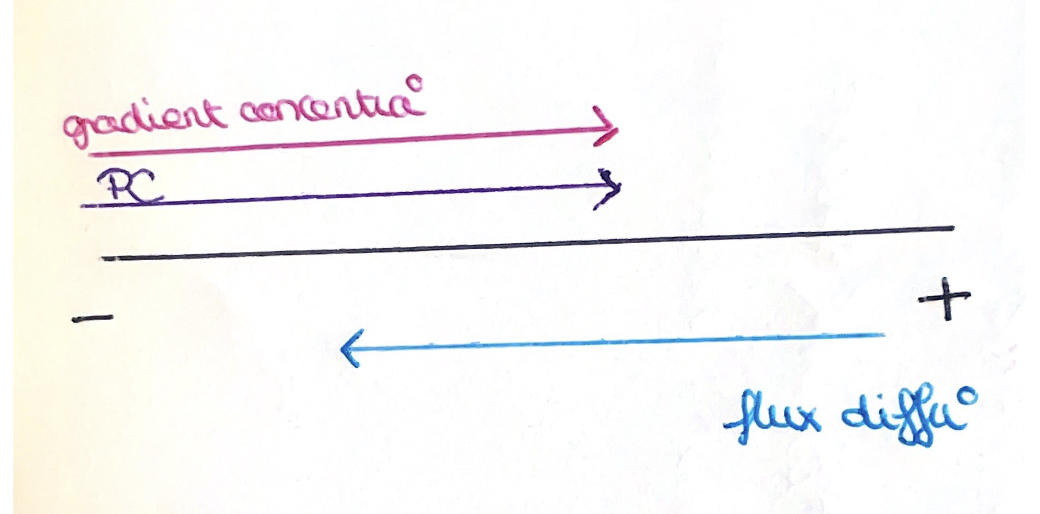 gradient concentra°
PC
- +
flux diffu°